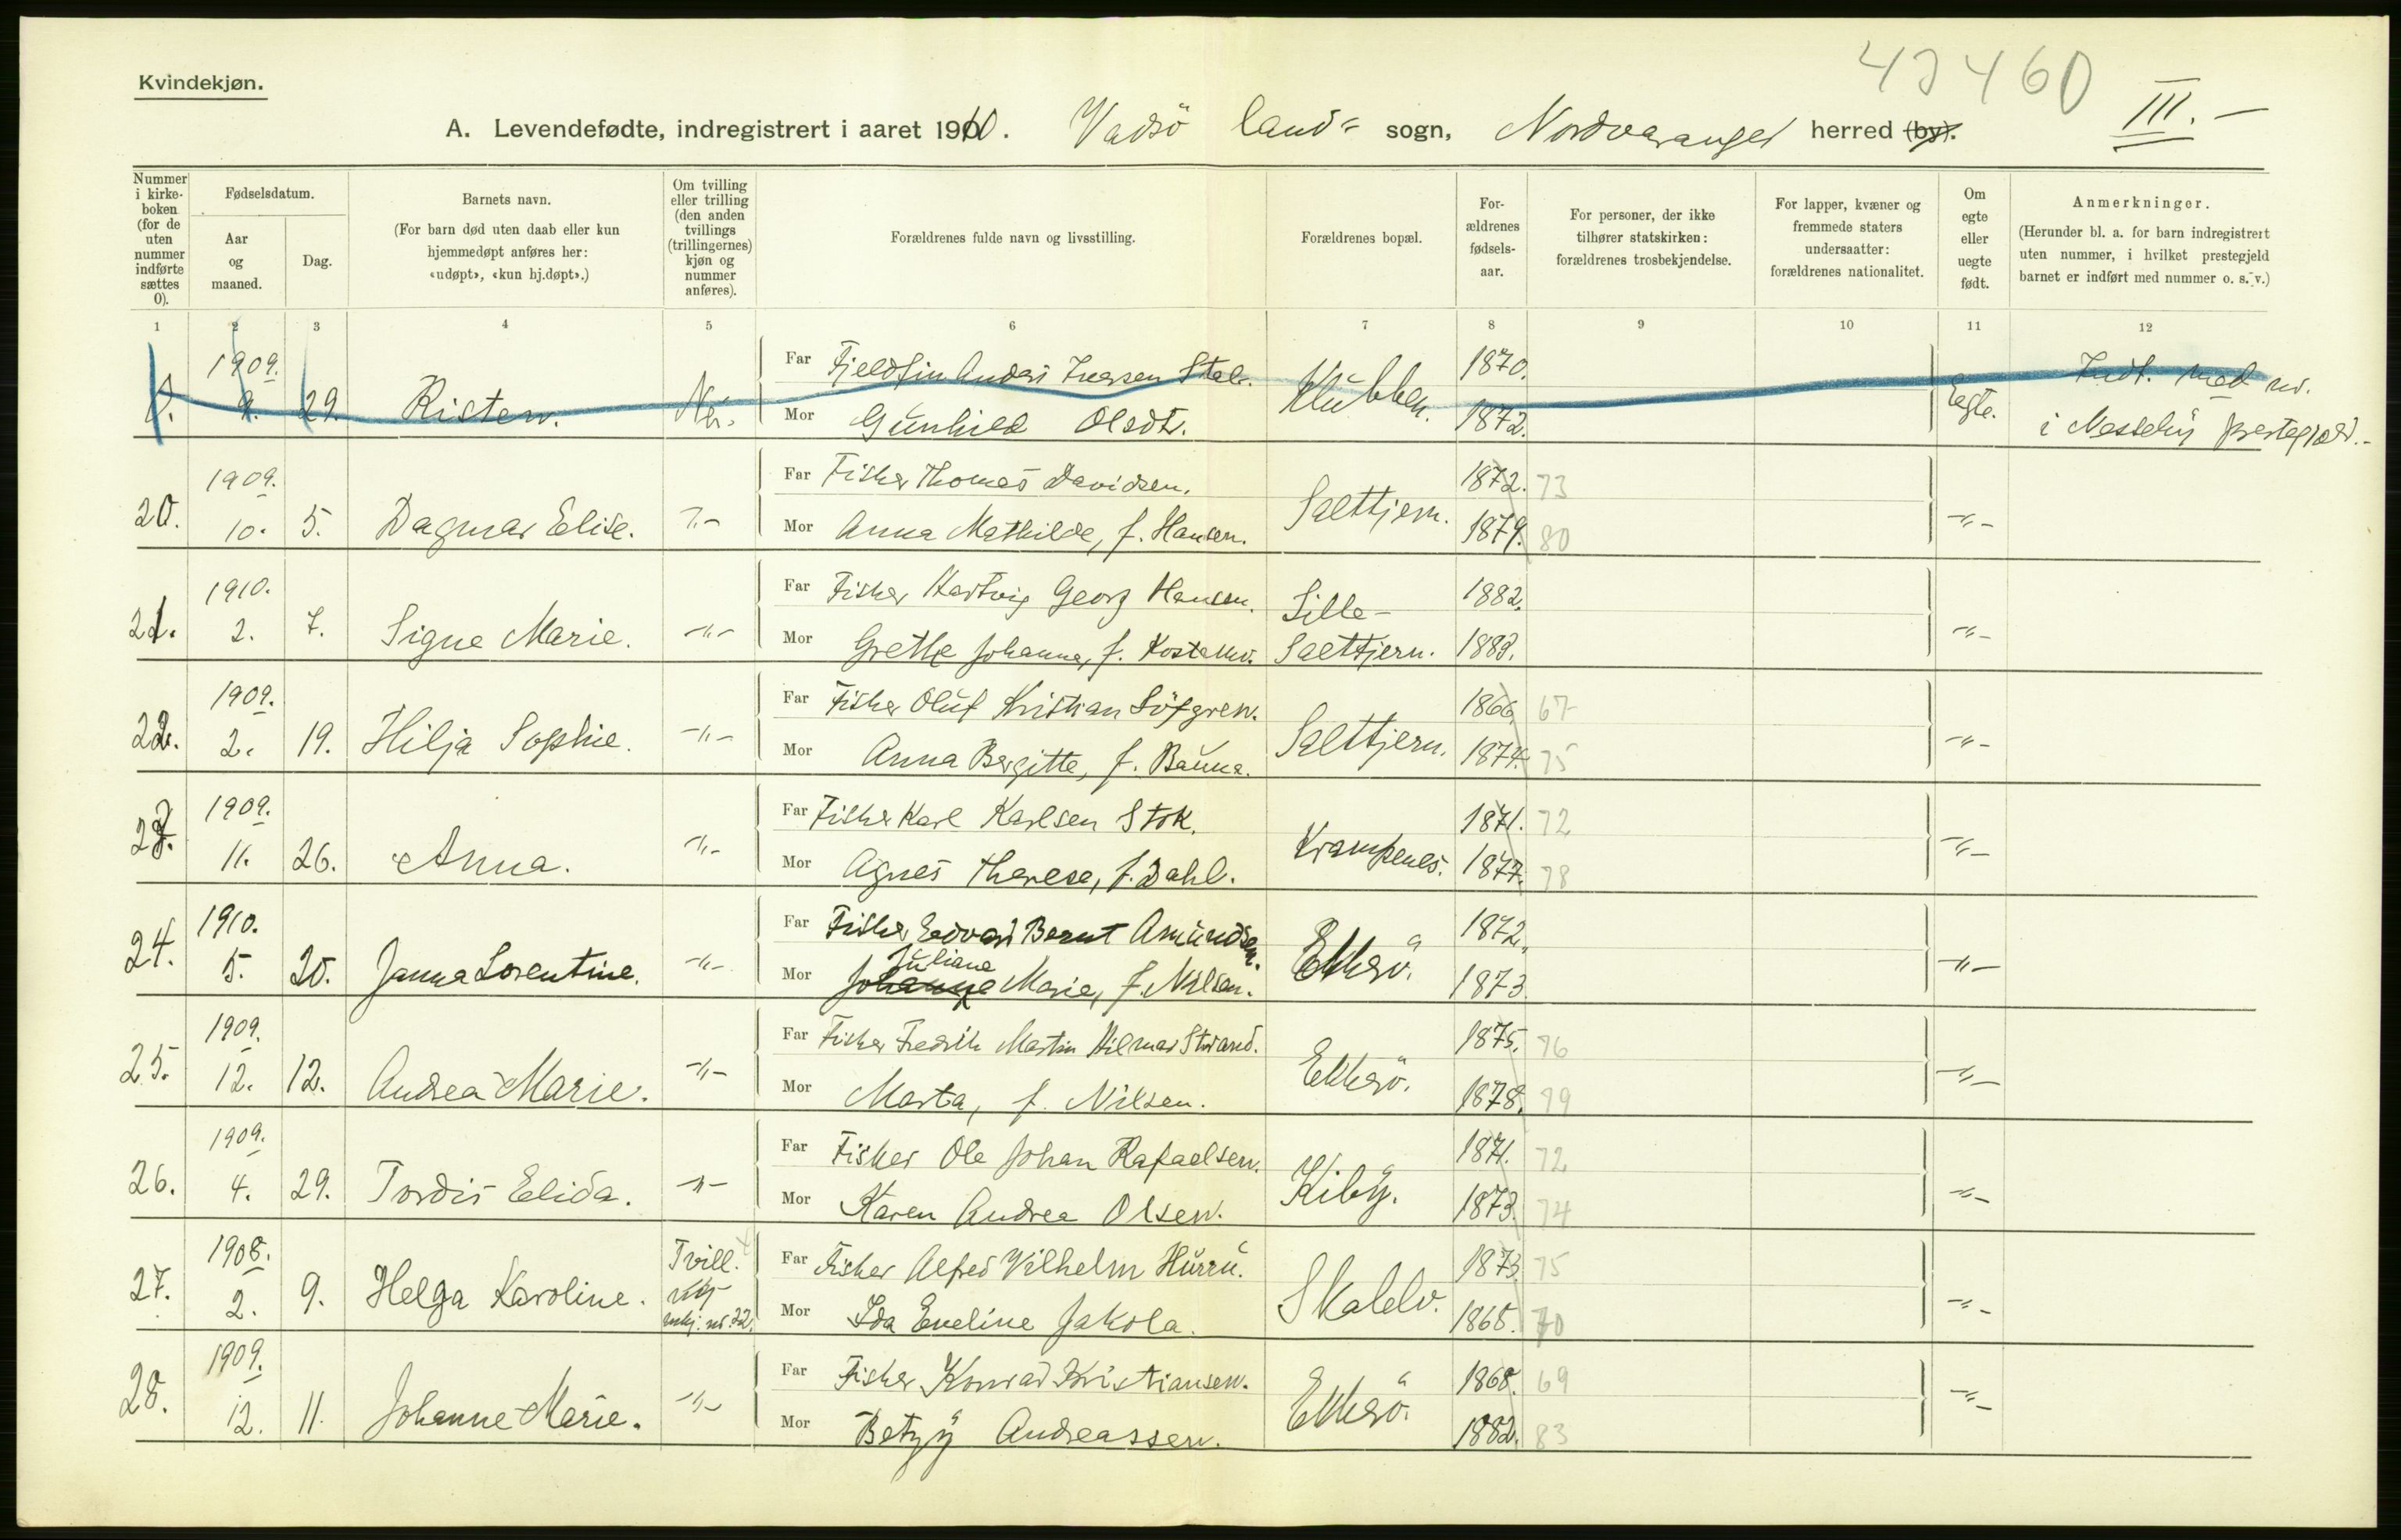 42460
Kvindekjøn.
III.-
A. Levendefødte, indregistrert i aaret 1910. Vadsö land= sogn, Nordvaranger herred (by).
Nummer i kirkeboken (for de uten nummer indførte sættes 0).
Fødselsdatum.
Aar og maaned.
Dag.
Barnets navn.
(For barn død uten daab eller kun hjemmedøpt anføres her: «udøpt», «kun hj.døpt».)
Om tvilling eller trilling (den anden tvillings (trillingernes) kjøn og nummer anføres).
Forældrenes fulde navn og livsstilling.
Forældrenes bopæl.
Forældrenes fødselsaar.
For personer, der ikke tilhører statskirken: forældrenes trosbekjendelse.
For lapper, kvæner og fremmede staters undersaatter: forældrenes nationalitet.
Om egte eller uegte født.
Anmerkninger.
(Herunder bl. a. for barn indregistrert uten nummer, i hvilket prestegjeld barnet er indført med nummer o. s. v.)
1 2 3 4 5 6 7 8 9 10 11 12
0. 1909. 9. 29. Risten. Nei.
Far Fjeldfin Anders Iversen Stal. Klubben. 1870.
Mor Gunhild Olsdt. 1872. Egte.
Indf. med nr.
i Nesseby prestegjeld.-
20. 1909. 10. 5. Dagmar Elise. -"-
Far Fisker Thomas Davidsen. Salttjern. 1872. 73
Mor Anna Mathilde, f. Hansen. 1879. 80 -"-
21. 1910. 2. 7. Signe Marie. -"-
Far Fisker Hartvig Georg Hansen. Lille- 1882.
Mor Grethe Johanna, f. Kostamo. Salttjern. 1883. -"-
22. 1909. 2. 19. Hilja Sophie. -"-
Far Fisker Oluf Kristian Löfgren. Salttjern. 1866. 67
Mor Anna Bergitte, f. Bauna. 1874. 75 -"-
23. 1909. 11. 26. Anna. -"-
Far Fisker Karl Karlsen Stok. Krampenes. 1871. 72
Mor Agnes Therese, f. Dahl. 1877. 78 -"-
24. 1910. 5. 20. Janna Lorentine. -"-
Far Fisker Edvard Bernt Amundsen. Ekkerö. 1872.
Juliane
Mor Johanna Marie, f. Nilsen. 1873. -"-
25. 1909. 12. 12. Andrea Marie. -"-
Far Fisker Fredrik Martin Hilmar Strand. Ekkerö. 1875. 76
Mor Marta, f. Nilsen. 1878. 79 -"-
26. 1909. 4. 29. Tordis Elida. -"-
Far Fisker Ole Johan Rafaelsen. Kiby. 1871. 72
Mor Karen Andrea Olsen. 1873. 74 -"-
27. 1908. 2. 9. Helga Karoline. Tvill. mkj. nr. 22.
Far Fisker Alfred Vilhelm Hurru. Skalelv. 1873. 75
Mor Ida Eveline Jakola. 1868. 70 -"-
28. 1909. 12. 11. Johanne Marie. -"-
Far Fisker Konrad Kristiansen. Ekkerö. 1868. 69
Mor Betzy Andreassen. 1882. 83 -"-